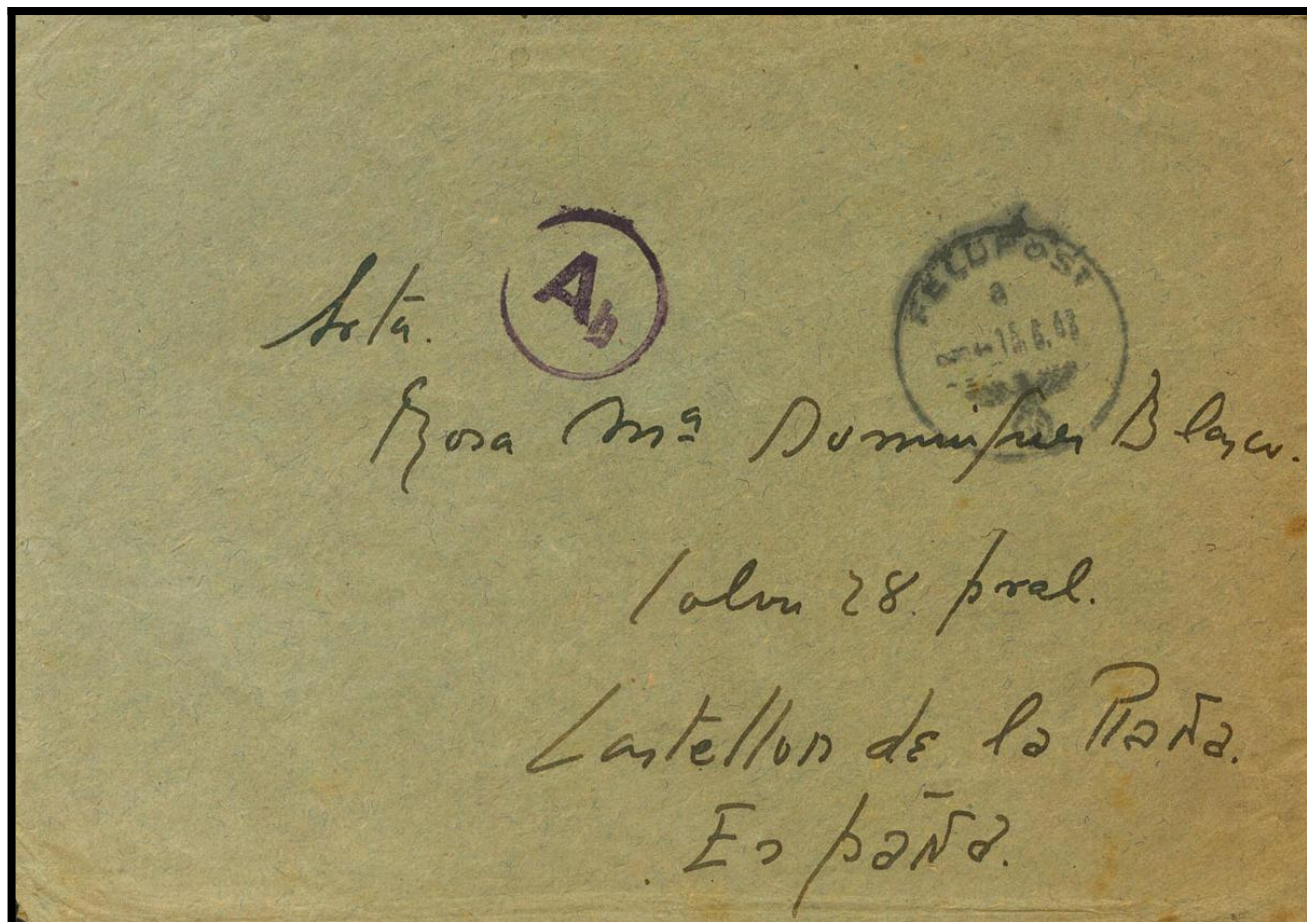 Srta.
Ab
FELDPOST
a
15.6.43
Rosa Mª Dominguez Blasco.
28. pral.
Castellon de la Plaña.
España.